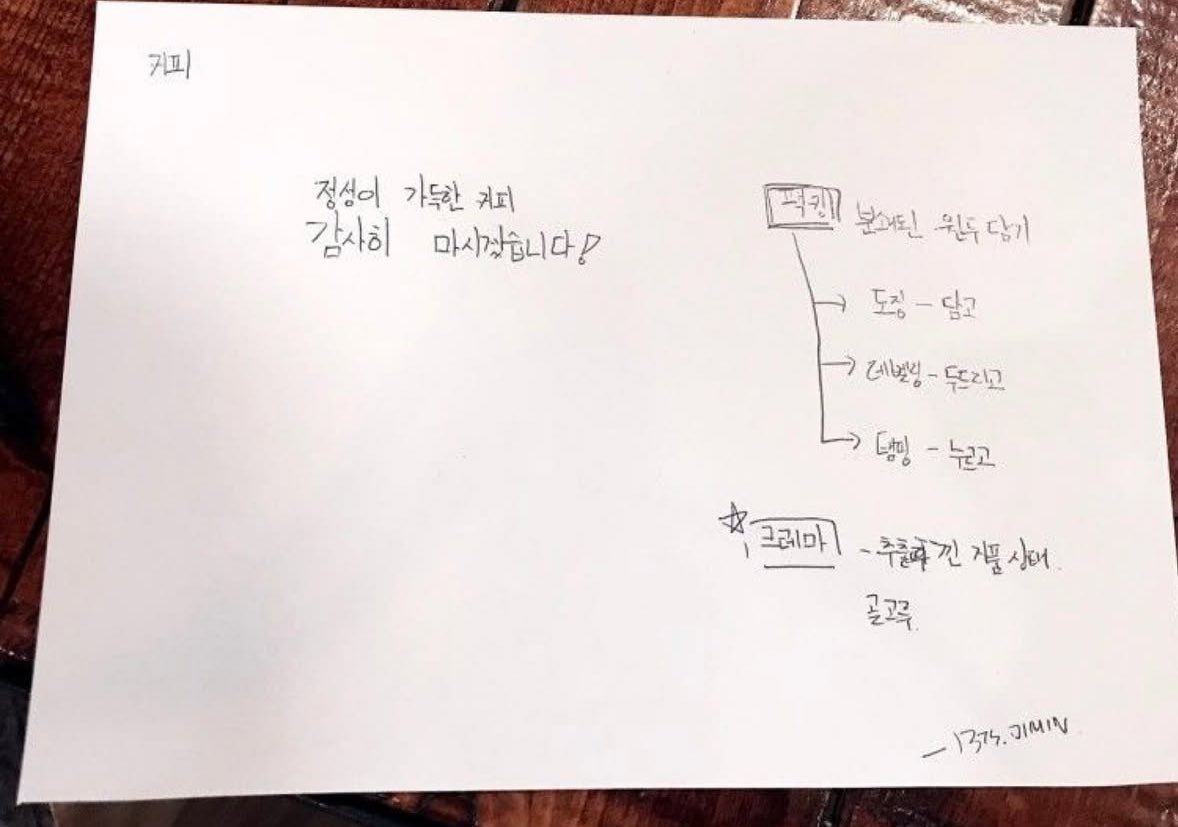 커피
정성이 가득한 커피
감사히 마시겠습니다!
팩킹 분쇄된 원두 담기
→ 도징 - 담고
→ 레벨링 - 두드리고
→ 탬핑 - 누르고
☆ 크레마 - 추출 낀 거품 상태.
골고루.
JIMIN